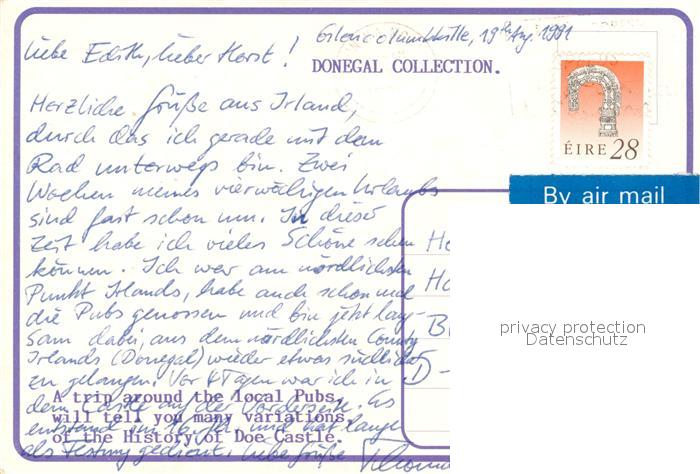 Glencolumbkille, 19th Aug. 1991
Liebe Edith, lieber Horst!
DONEGAL COLLECTION.
Herzliche Grüße aus Irland,
durch das ich gerade mit dem
Rad unterwegs bin. Zwei
Wochen meines vierwöchigen Urlaubs
sind fast schon um. In dieser
Zeit habe ich vieles Schöne sehen
können. Ich war am nördlichsten
Punkt Irlands, habe auch schon mal
die Pubs genossen und bin jetzt lang-
sam dabei, aus dem nördlichsten County
Irlands (Donegal) wieder etwas südlicher
zu gelangen. Vor 4 Tagen war ich in
dem Castle auf der Vorderseite. Es
entstand im 16. Jh. und hat lange
als Festung gedient. Liebe Grüße
A trip around the local Pubs,
will tell you many variations
of the History of Doe Castle.
ÉIRE 28
By air mail
D-
privacy protection
Datenschutz